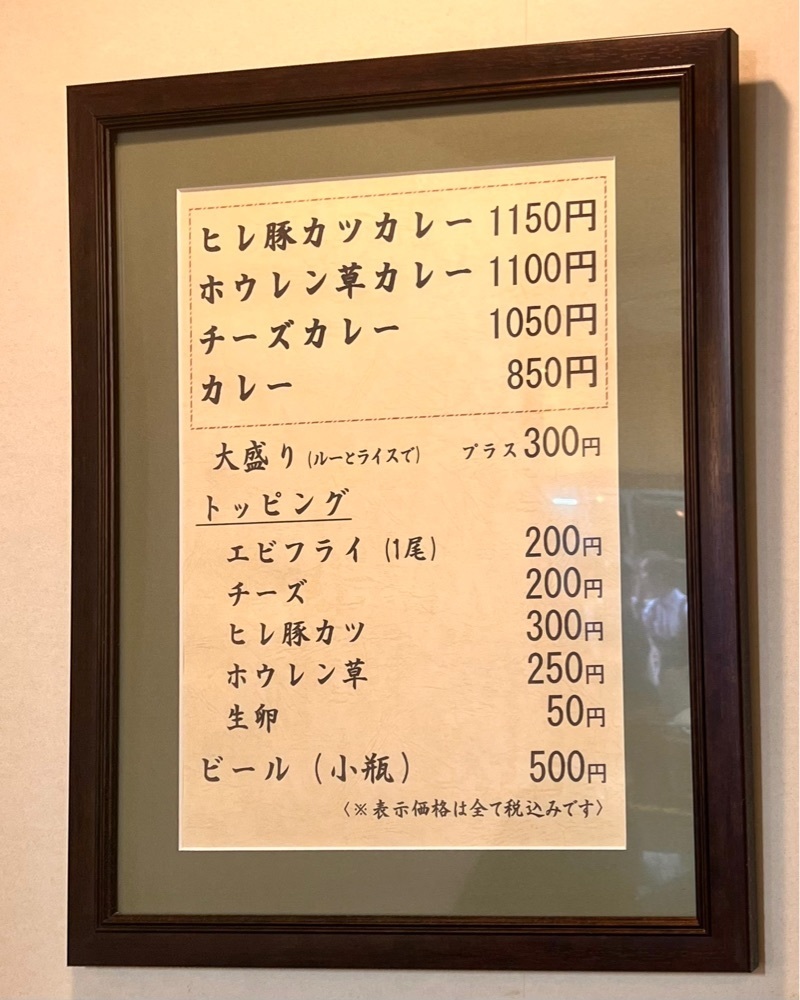 ヒレ豚カツカレー 1150円
ホウレン草カレー 1100円
チーズカレー 1050円
カレー 850円
大盛り (ルーとライスで) プラス300円
トッピング
エビフライ (1尾) 200円
チーズ 200円
ヒレ豚カツ 300円
ホウレン草 250円
生卵 50円
ビール (小瓶) 500円
〈※表示価格は全て税込みです〉